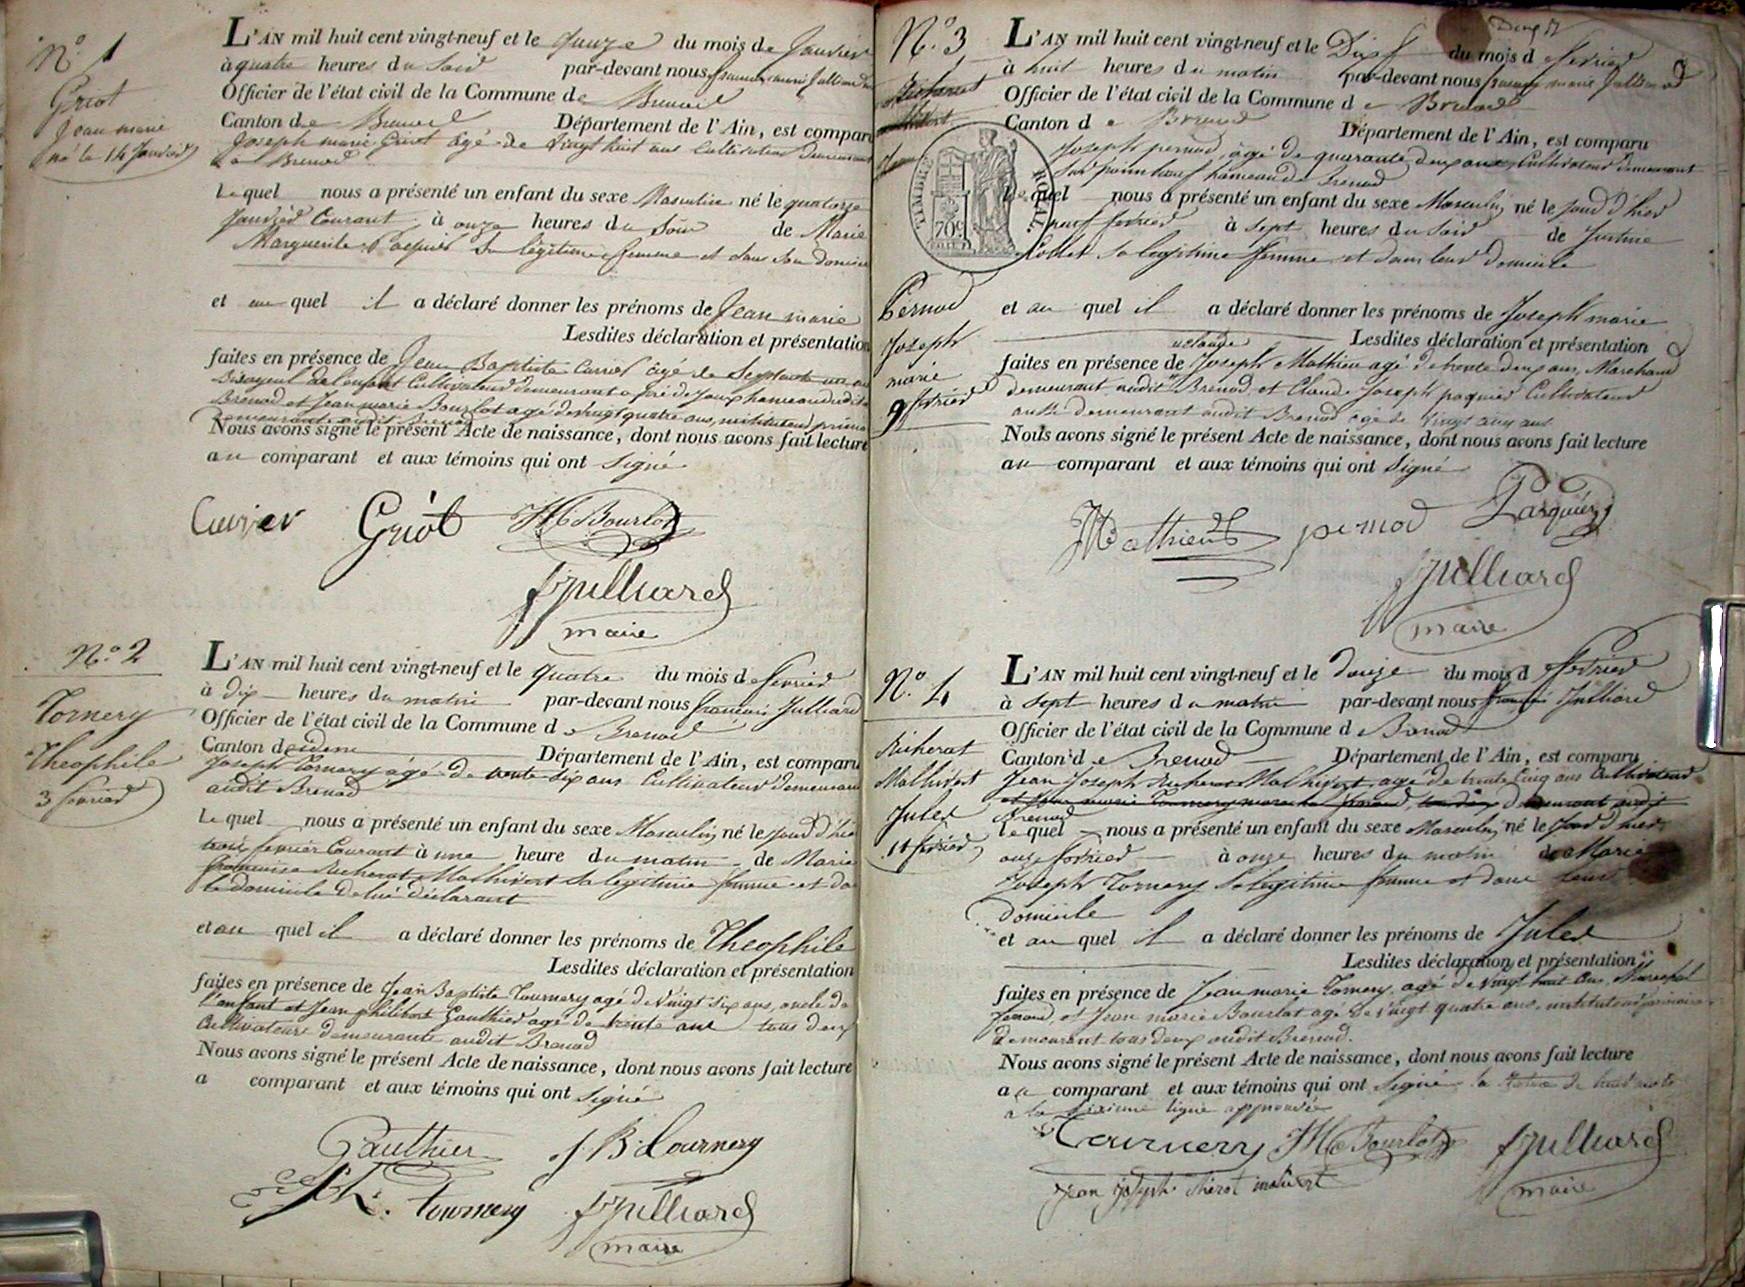 N.º 1
Griot
Jean marie
né le 14 Janvier
L'AN mil huit cent vingt-neuf et le quinze du mois de Janvier
à quatre heures du soir par-devant nous françois marie Julliard
Officier de l'état civil de la Commune de Brenod
Canton de Brenod Département de l'Ain, est comparu
Joseph marie Griot âgé de vingt huit ans Cultivateur demeurant
à Brenod
Lequel nous a présenté un enfant du sexe Masculin né le quatorze
Janvier Courant à onze heures du soir de Marie
Marguerite Pasquier Sa légitime femme et dans Son domicile
et au quel il a déclaré donner les prénoms de Jean marie
Lesdites déclaration et présentation
faites en présence de Jean Baptiste Carrier âgé de Septante un ans
Bisayeul de l'enfant Cultivateur demeurant a hameau dudit
Brenod et Jean marie Bourlot agé de vingt quatre ans, instituteur primaire
demeurant audit Brenod
Nous avons signé le présent Acte de naissance, dont nous avons fait lecture
au comparant et aux témoins qui ont Signé
Carrier Griot JM Bourlot
f Julliard
maire
N.º 2
Tornery
Theophile
3 fevrier
L'AN mil huit cent vingt-neuf et le quatre du mois de fevrier
à dix heures du matin par-devant nous françois Julliard
Officier de l'état civil de la Commune de Brenod
Canton de idem Département de l'Ain, est comparu
Joseph Tornery âgé de trente Six ans Cultivateur demeurant
audit Brenod
Lequel nous a présenté un enfant du sexe Masculin, né le jour d'hier
trois fevrier Courant à une heure du matin de Marie
françoise Richerot Malhivert Sa legitime femme et dans
le domicile de lui déclarant
et au quel il a déclaré donner les prénoms de Theophile
Lesdites déclaration et présentation
faites en présence de Jean Baptiste Tournery agé de Vingt Six ans, oncle de
l'enfant et Jean philibert Gauthier agé de trente ans tous deux
Cultivateurs demeurants audit Brenod
Nous avons signé le présent Acte de naissance, dont nous avons fait lecture
a comparant et aux témoins qui ont Signé
Gauthier J B Tournery
Jh. tournery f Julliard
maire
N.º 3
TIMBRE ROYAL
70c
Pernod
Joseph
marie
9 fevrier
L'AN mil huit cent vingt-neuf et le Dix du mois de fevrier
à huit heures du matin par-devant nous françois marie Julliard
Officier de l'état civil de la Commune de Brenod
Canton de Brenod Département de l'Ain, est comparu
Joseph pernod, âgé de quarante deux ans, Cultivateur demeurant
hameau de Brenod
Lequel nous a présenté un enfant du sexe Masculin, né le jour d'hier
neuf fevrier à sept heures du Soir de Justine
Collet Sa legitime femme et dans leur domicile
et au quel il a déclaré donner les prénoms de Joseph marie
Lesdites déclaration et présentation
faites en présence de Joseph Mathieu agé de trente deux ans, Marchand
demeurant audit Brenod et Claude Joseph paquier Cultivateur
aussi demeurant audit Brenod agé de vingt cinq ans
Nous avons signé le présent Acte de naissance, dont nous avons fait lecture
au comparant et aux témoins qui ont Signé
Mathieu pernod Pasquier
f Julliard
maire
N.º 4
Richerot
Malhivert
Jules
11 fevrier
L'AN mil huit cent vingt-neuf et le douze du mois de fevrier
à sept heures du matin par-devant nous françois Julliard
Officier de l'état civil de la Commune de Brenod
Canton de Brenod Département de l'Ain, est comparu
Jean Joseph Richerot Malhivert, agé de trente Cinq ans Cultivateur
et Jean marie Tournery marechal ferrand, tous deux demeurant audit
Brenod
Lequel nous a présenté un enfant du sexe Masculin, né le Jour d'hier
onze fevrier à onze heures du matin de Marie
Joseph Tornery Sa legitime femme et dans leur
domicile
et au quel il a déclaré donner les prénoms de Jules
Lesdites déclaration et présentation
faites en présence de Jean marie Tornery agé de vingt huit ans, Marechal
ferrand, et Jean marie Bourlot agé de vingt quatre ans, instituteur primaire
demeurant tous deux audit Brenod.
Nous avons signé le présent Acte de naissance, dont nous avons fait lecture
au comparant et aux témoins qui ont Signé la rature de huit mots
a la sixieme ligne approuvée
Tournery JM Bourlot f Julliard
Jean Joseph malivert maire